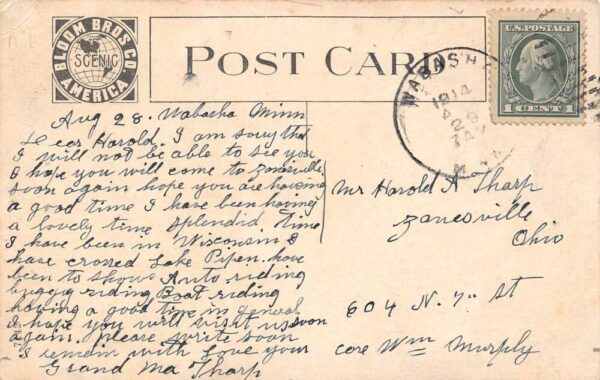 BLOOM BROS CO
SCENIC
AMERICA
POST CARD
U.S. POSTAGE
1 CENT 1
WABASHA
1914
MINN
Aug 28. Wabasha Minn
Dear Harold. I am sorry that
I will not be able to see you
I hope you will come to Zanesville
soon again hope you are having
a good time I have been having
a lovely time splendid time
I have been in Wisconsin I
have crossed Lake Pipen. have
been to shows Auto riding
buggy riding Boat riding
having a good time in general
I hope you will visit us soon
again. please write soon
I remain with love your
Grand Ma Tharp
Mr Harold A Tharp
Zanesville
Ohio
604 N. 7th St
care Wm Murply